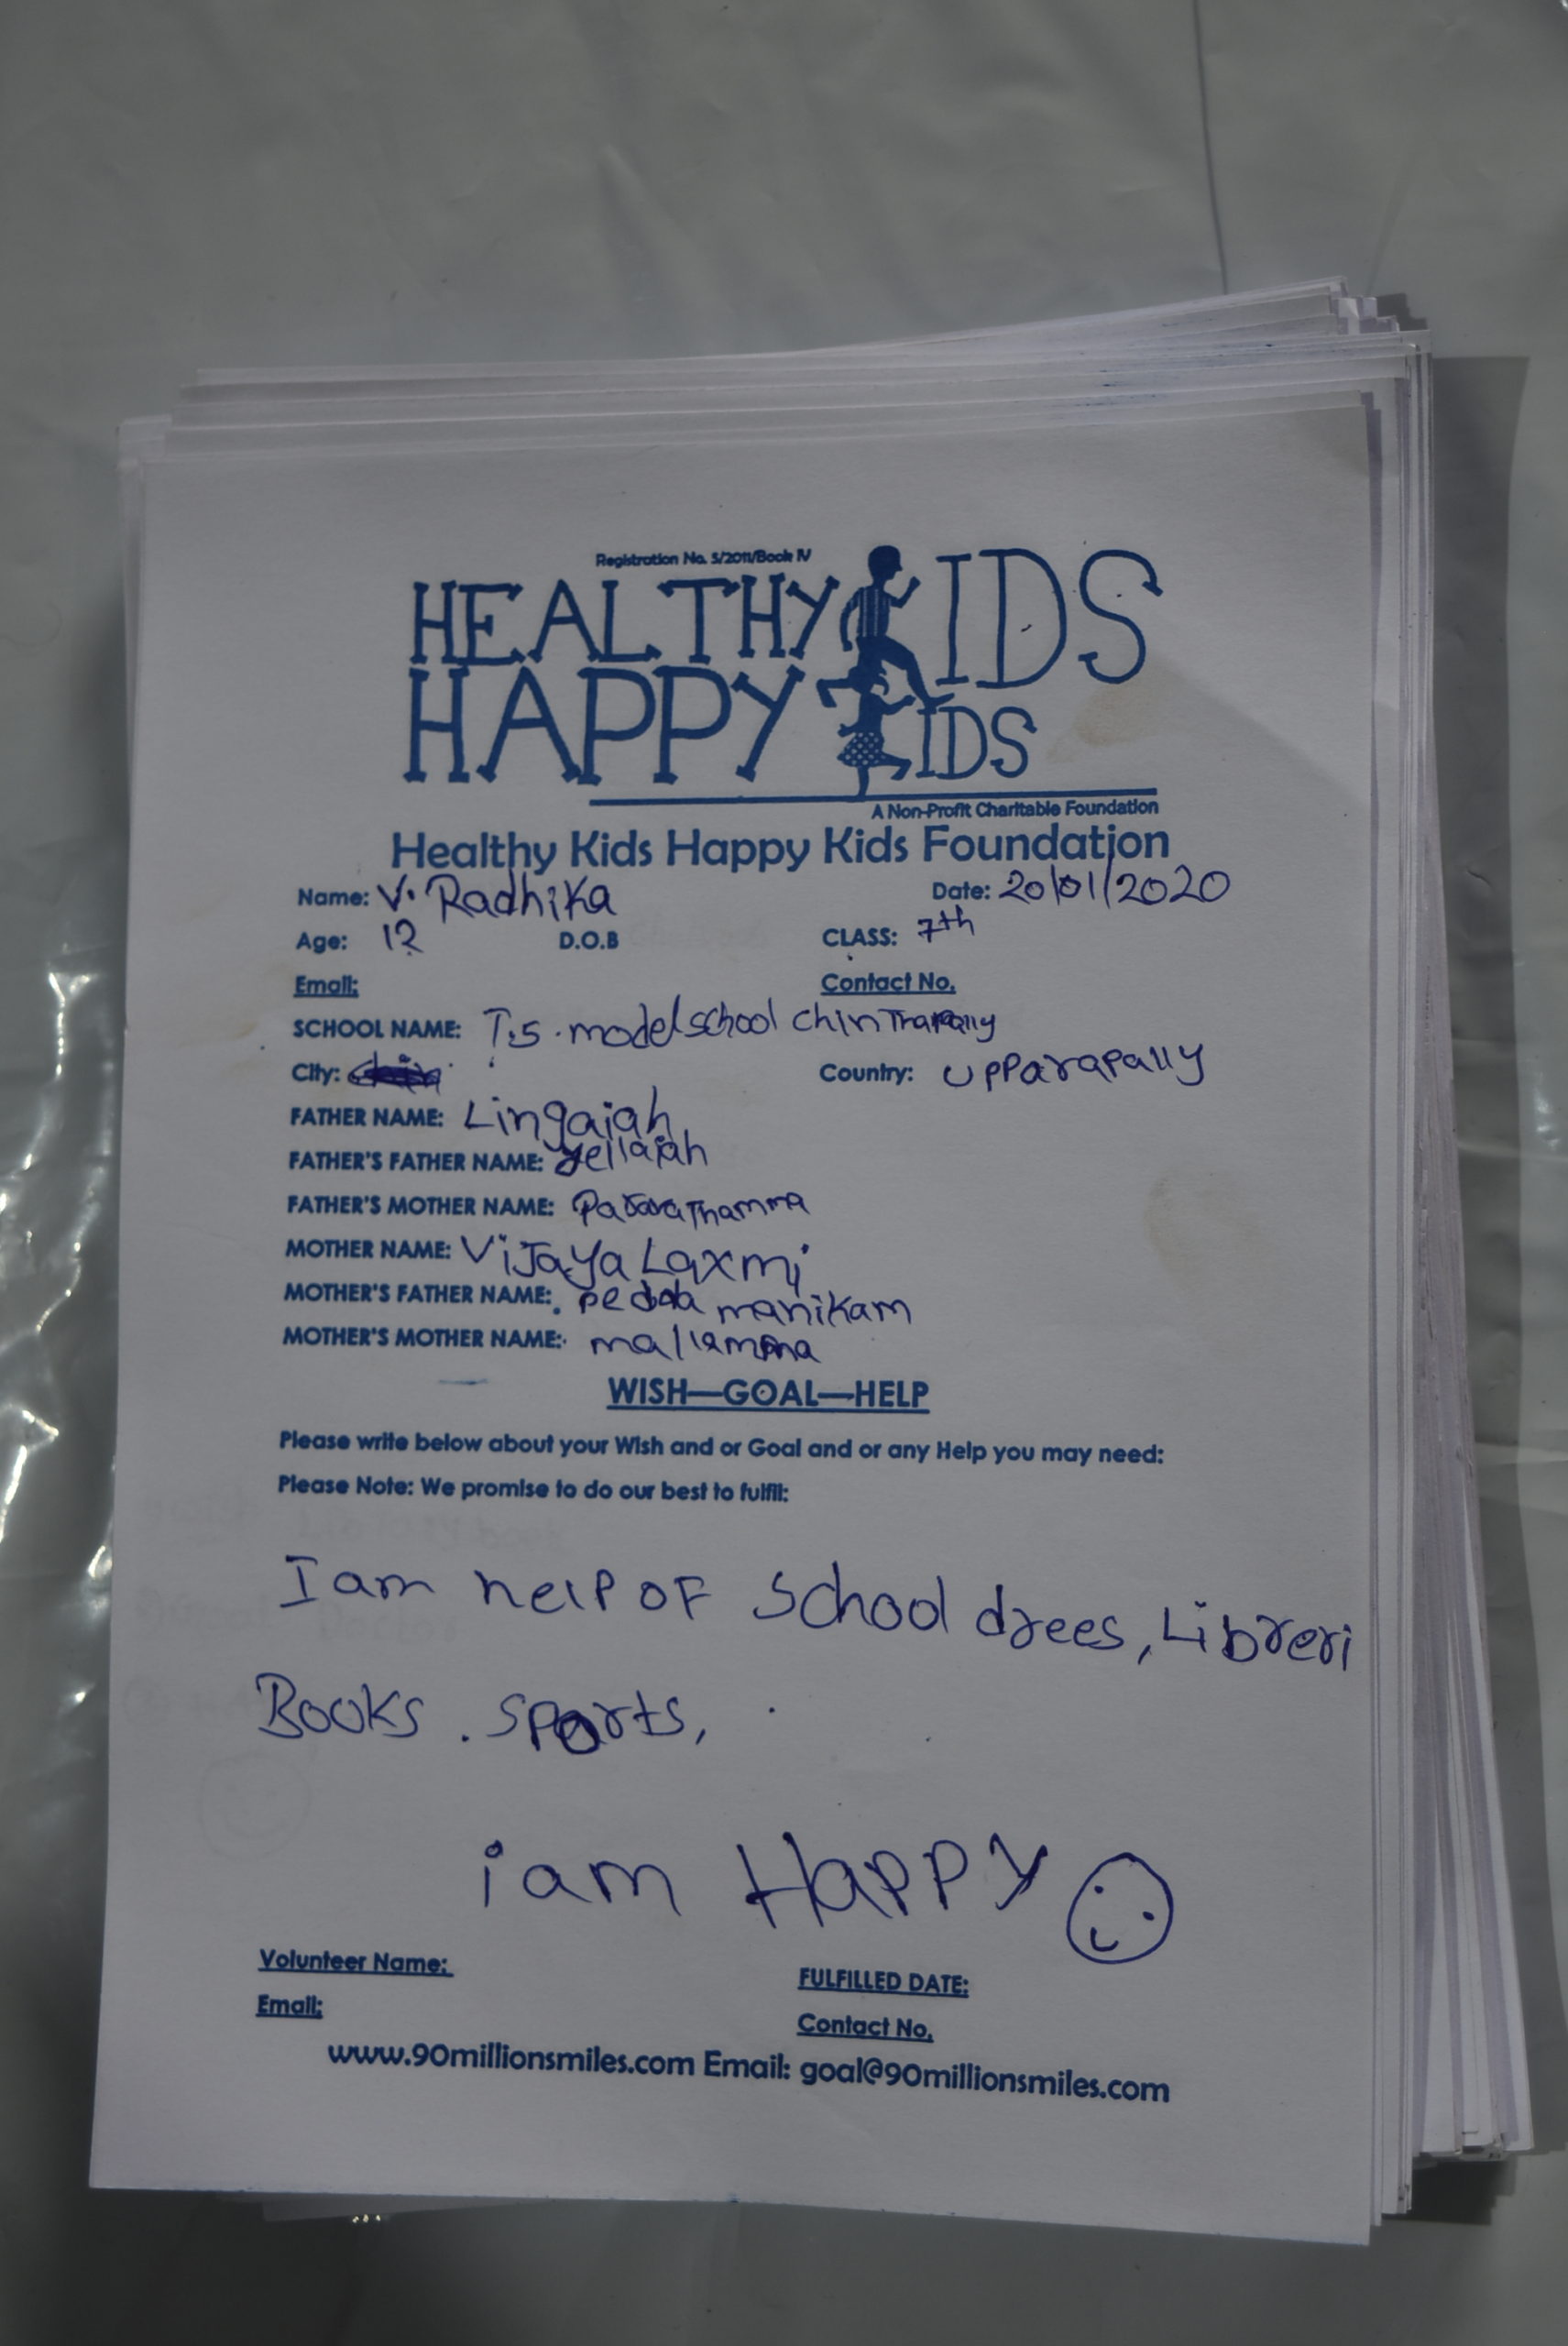 Registration No. 5/2011/Book IV
HEALTHY KIDS
HAPPY KIDS
A Non-Profit Charitable Foundation
Healthy Kids Happy Kids Foundation
Name: V. Radhika Date: 20/01/2020
Age: 12 D.O.B CLASS: 7th
Email: Contact No.
SCHOOL NAME: T.S. model school chinThapally
City: Country: Upparapally
FATHER NAME: Lingaiah
FATHER'S FATHER NAME: yellaiah
FATHER'S MOTHER NAME:
MOTHER NAME: ViJaya Laxmi
MOTHER'S FATHER NAME: pedda manikam
MOTHER'S MOTHER NAME: mallamma
WISH—GOAL—HELP
Please write below about your Wish and or Goal and or any Help you may need:
Please Note: We promise to do our best to fulfil:
I am help OF School drees, Libreri
Books . sports,
i am Happy
Volunteer Name: FULFILLED DATE:
Email: Contact No.
www.90millionsmiles.com Email: goal@90millionsmiles.com